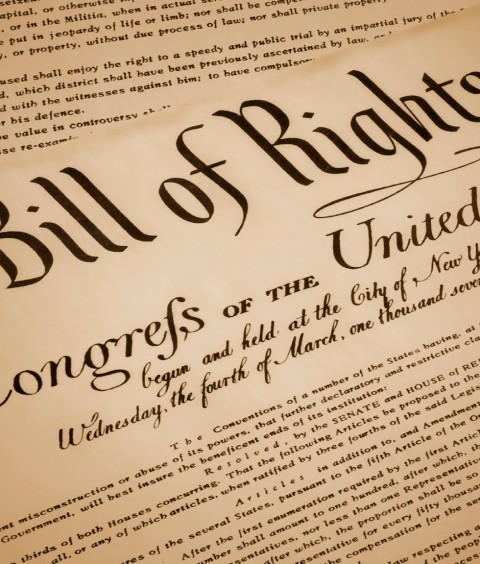 apital, or otherwise
, or in the Militia, when in actual
e put in jeopardy of life or limb; nor shall be
y, or property, without due process of law; nor shall private
used shall enjoy the right to a speedy and public trial by an impartial jury of the
d, which district shall have been previously ascertained by law,
d with the witnesses against him; to have compulsory
r his defence.
value in controversy
ise re-exami
Bill of Rights
Congreſs OF THE United
begun and held at the City of New Y
Wednesday, the fourth of March, one thousand seve
The Conventions of a number of the States having, at
nt misconstruction or abuse of its powers, that further declaratory and restrictive cla
Government, will best insure the beneficent ends of its institution:
Resolved, by the SENATE and HOUSE of RE
thirds of both Houses concurring. That the following Articles be proposed to the
all, or any of which articles, when ratified by three fourths of the said Legis
Articles in addition to, and Amendment
res of the several States, pursuant to the fifth Article of the O
After the first enumeration required by the first Artic
number shall amount to one hundred, after which, the
sentatives, nor less than one Representative
after which, the proportion shall be so
sentative for every fifty thousan
the compensation for the se
law respecting a